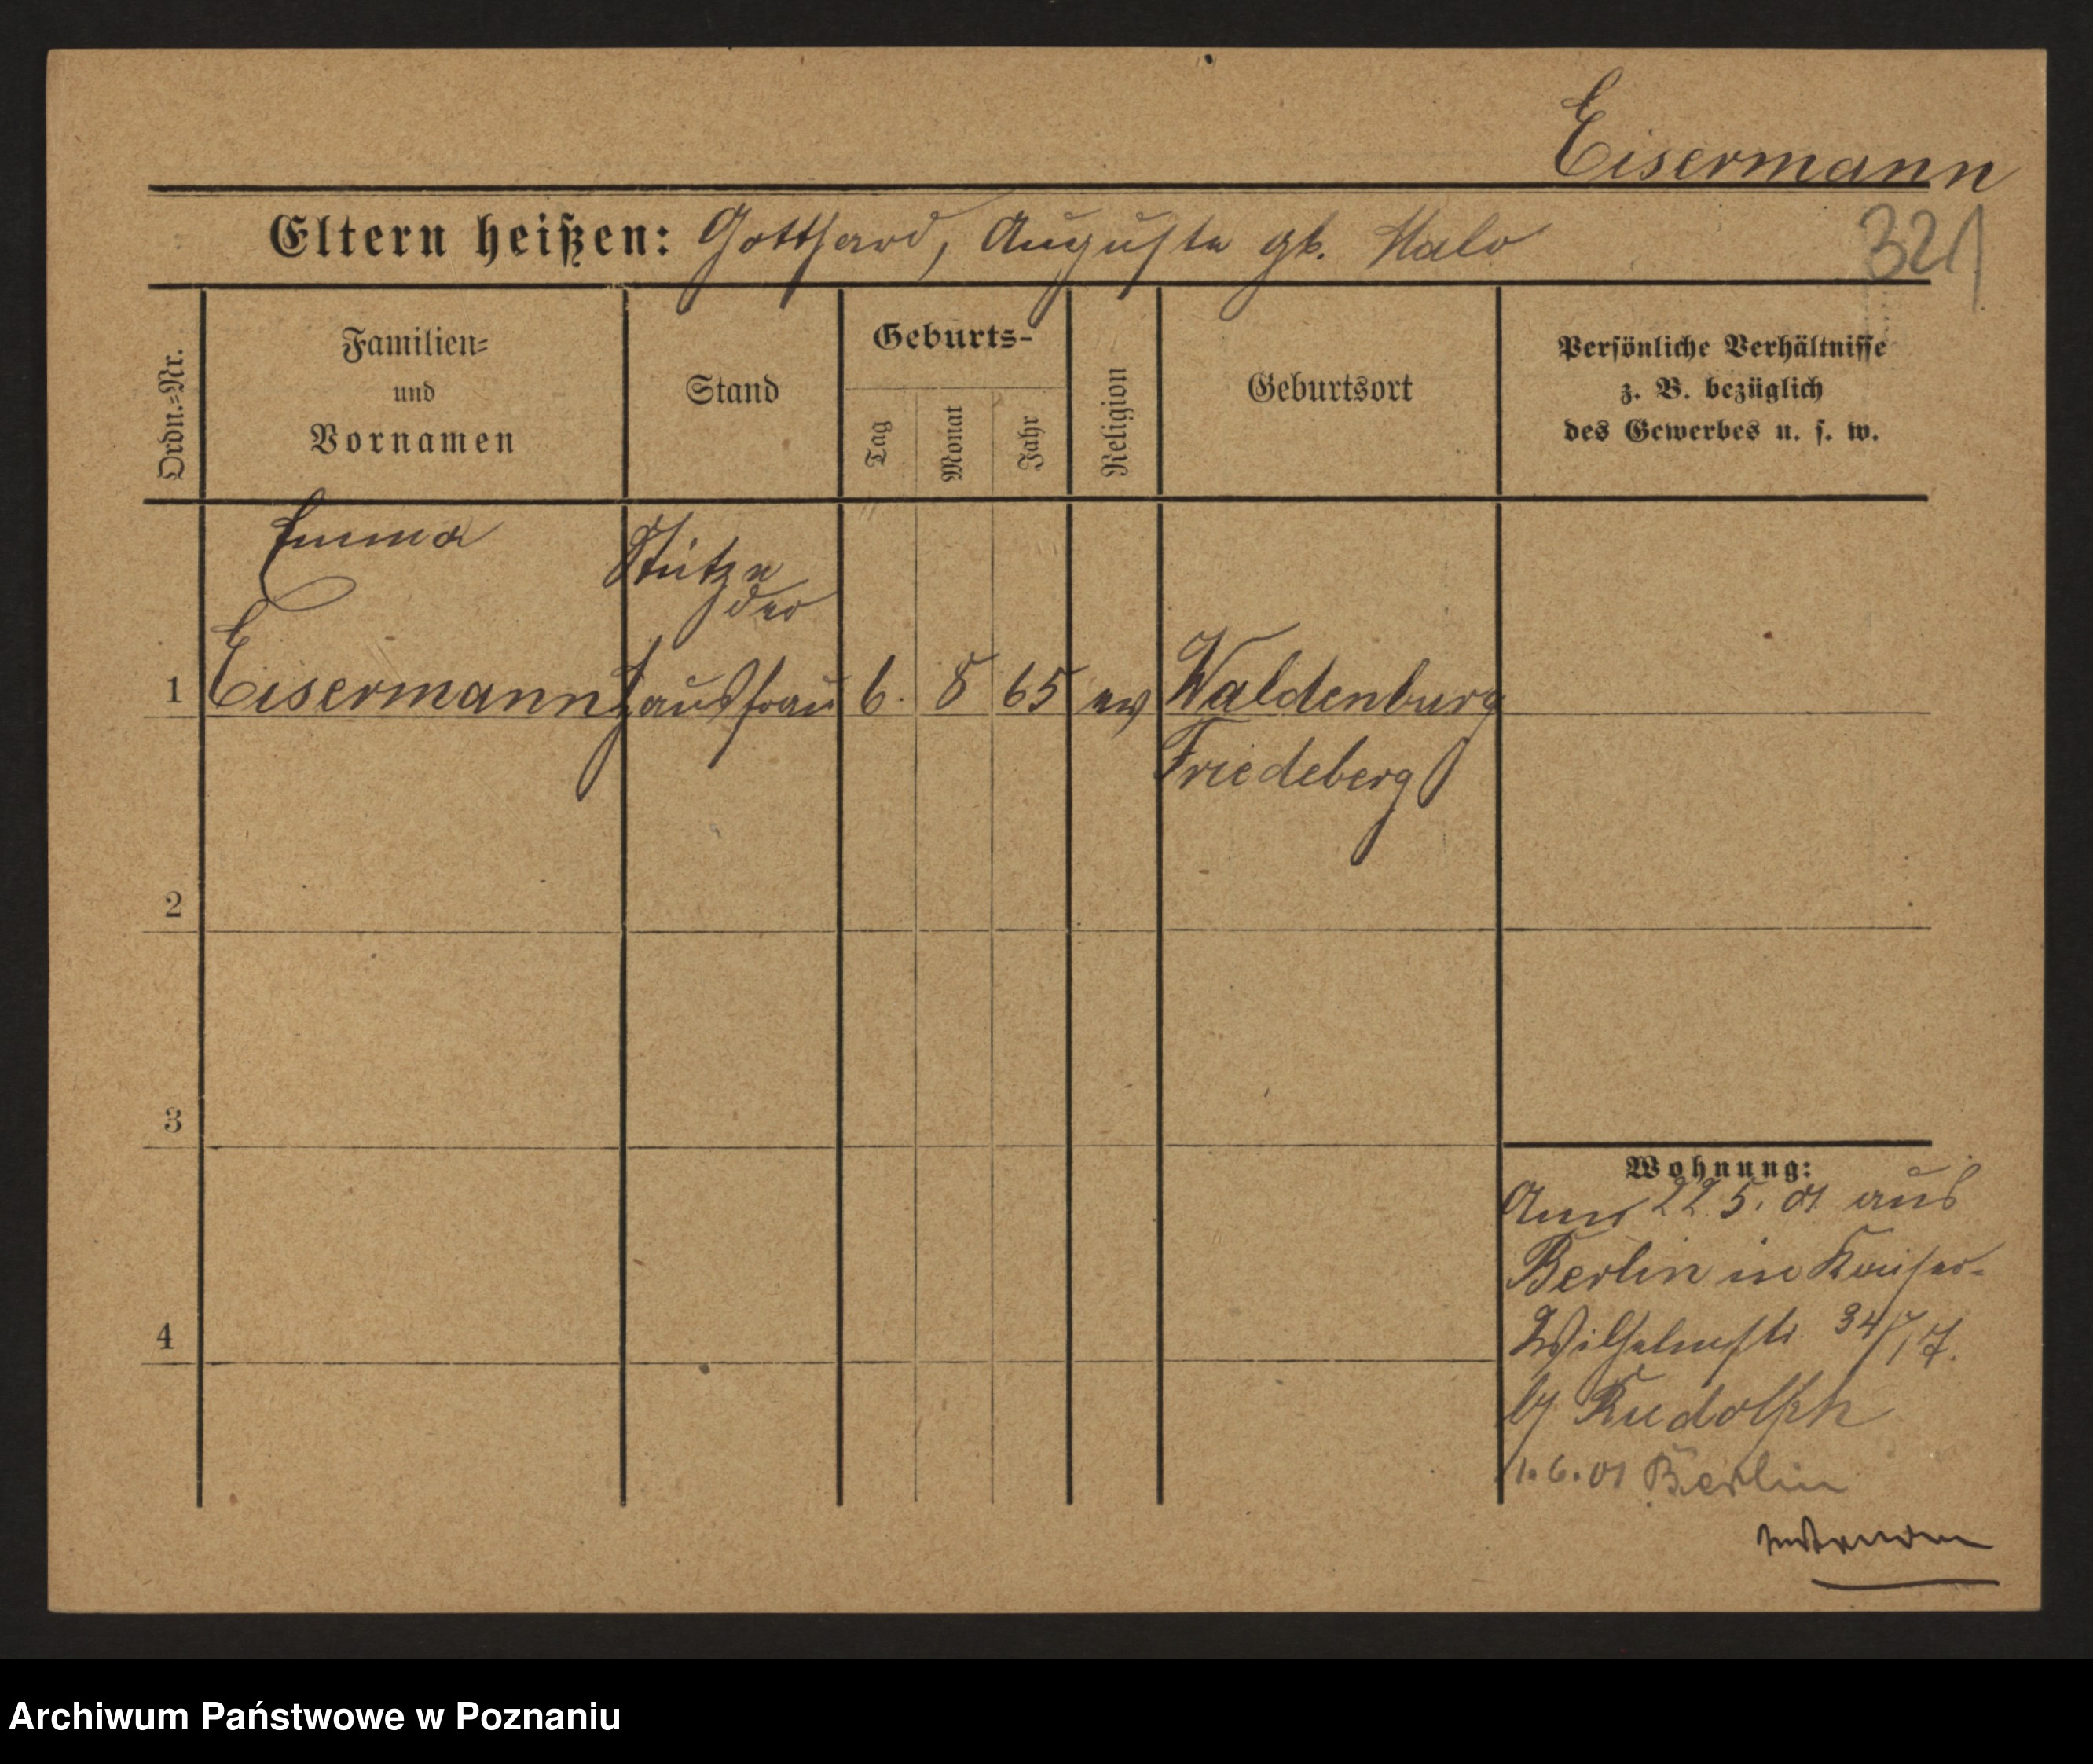 Eisermann
321
Eltern heißen: Gotthard, Auguste gb. Halv
Ordn.=Nr.
Familien=
und
Vornamen
Stand
Geburts-
Tag
Monat
Jahr
Religion
Geburtsort
Persönliche Verhältnisse
z. B. bezüglich
des Gewerbes u. s. w.
Emma
Stütze
der
1 Eisermann Hausfrau 6. 8 65 ev Waldenburg
Friedeberg
2
3
4
Wohnung:
Am 22 5. 01 aus
Berlin in Kaiser-
Wilhelmstr. 34/17.
by Rudolph
1.6.01 Berlin
Archiwum Państwowe w Poznaniu